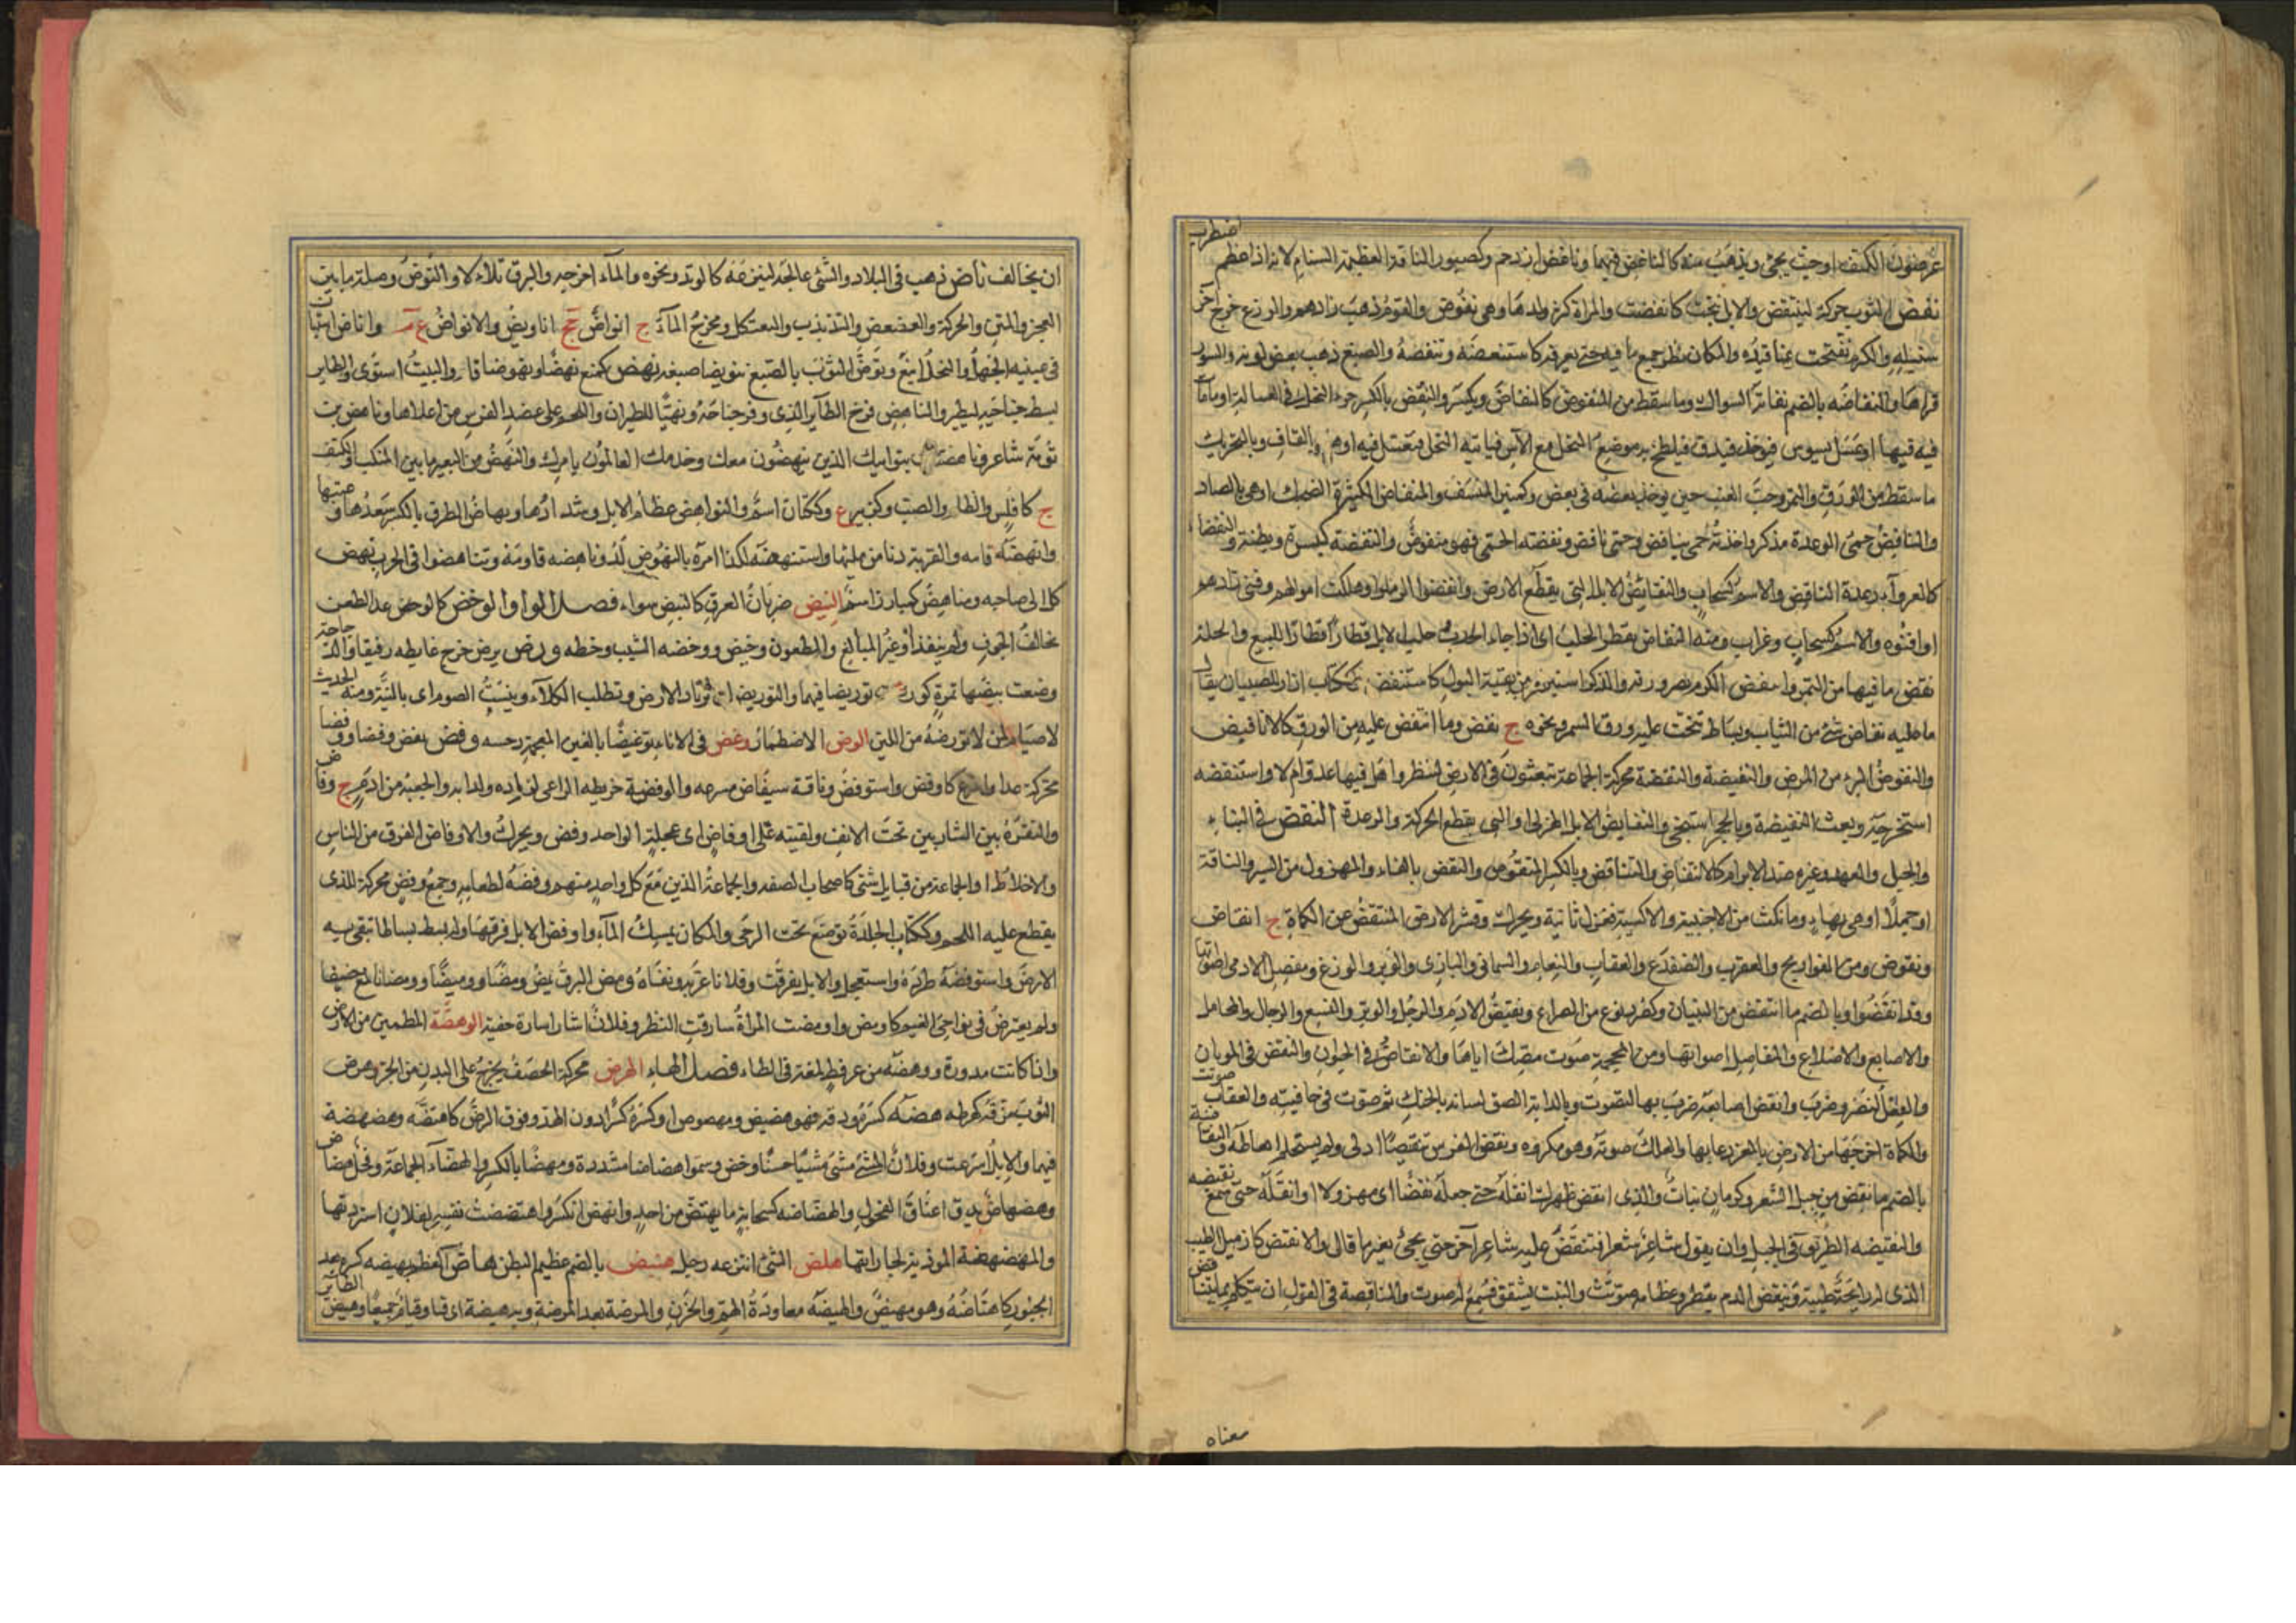 غرضوف الكتف او حيث يجئ ويذهب منه كالناغض فيهما وناغض ازدحم وكصبور الناقة العظيمة السنام لانه اذا عظم اضطرب
نفض الثوب حركه لينتفض والابل نتجت كانفضت والمراة كثر ولدها وهى نفوض والقوم ذهب زادهم والزرع خرج آخر
سنبله والكرم تفتحت عناقيده والمكان نظر جميع ما فيه حتى يعرفه كاستنفضه وتنفضه والصبغ ذهب بعض لونه والسور
قراها والنفاضة بالضم نفاثة السواك وما سقط من المنفوض كالنفاض ويكسر والنفض بالكسر خرء النحل فى العسالة او مامات
فيه فيها او عسل يسوس فيوخذ فيدق فيلطخ به موضع النحل مع الآس فياتيه النحل فيعسل فيه او هو بالقاف وبالتحريك
ما سقط من الورق والثمر وحب العنب حين يوجد بعضه فى بعض وكمنبر المنسف والمنفاض الكثيرة الضحك او هى بالصاد
والنافض حمى الرعدة مذكر واخذته حمى بنافض وحمى نافض ونفضته الحمى فهو منفوض والنفضة كبسرة ورطبة والنفضاء
كالعرواء رعدة النافض والاسم كسحاب والنفائض الابل التى يقطع الارض وانفضوا ارملوا وهلكت اموالهم وفنى زادهم
او افنوه والاسم كسحاب وغراب ومنه النفاض يقطر الجلب اى اذا جاء الجدب جلب الابل قطارا قطارا للبيع والجلة
نفض ما فيها من التمر وانتفض الكرم نضر ورقه والذكر استبرءه من بقية البول كاستنفض وككتاب ازار للصبيان يقال
ما عليه نفاض شئ من الثياب وبساط ينحت عليه ورق السمر ونحوه ج نفض وما انتفض عليه من الورق كالانافيض
والنفوض البرء من المرض والنفيضة والنفضة محركة الجماعة تبعثون فى الارض لينظروا هل فيها عدو ام لا واستنفضه
استخرجه وبعث النفيضة وبالحجر استنجى والنفايض الابل الهزلى او التى يقطع الحركة والرعدة النقض فى البناء
والحبل والعهد وغيره ضد الابرام كالانتقاض والتناقض وبالكسر المنقوض والنقض بالهاء والمهزول من السير والناقة
او جملا او هى بهاء وما نكث من الاخبية والاكسية فغزل ثانية ويحرك وقشر الارض المنتقض عن الكماة ج انقاض
ونقوض ومن الفراريج والعقرب والضفدع والعقاب والنعام والسمانى والبازى والوبر والوزغ ومفصل الادمى اصواتها
وقد انقضوا وبالضم ما انتقض من البنيان وكصرد نوع من الصراع ونقيض الادم والرجل والوتر والنسع والرحال والمحامل
والاصابع والاضلاع والمفاصل اصواتها ومن المحجمة صوت مصك اياها والانقاض فى الحيوان والنقض فى الموتان
والفعل كنصر وضرب وانقض اصابعه ضرب بها لتصوت وبالدابة الصق لسانه بالحنك ثم صوت فى حافتيه والعقاب صوتت
والكماة اخرجها من الارض وبالمعز دعا بها والعلك صوته وهو مكروه ونقض الفرس تنقيضا ادلى ولم يستحكم انعاظه والنقاضة
بالضم ما نقض من حبل الشعر وكرمان نبات والذى انقض ظهرك اثقله حتى جعله نقضا اى مهزولا او اثقله حتى سمع نقيضه
والنقيضة الطريق فى الجبل وان يقول شاعر شعرا فتنقض عليه شاعر آخر حتى يجئ بغير ما قال والانقيض كازميل الطيب
الذى له رايحة طيبة وتنقض الدم يقطر وعظامه صوتت والبيت تشقق فسمع له صوت والمناقضة فى القول ان تتكلم بما يتناقض
معناه
ان يخالف ناض ذهب فى البلاد والشئ عالجه لينتزعه كالوتد ونحوه والماء اخرجه والبرق تلألأ والنوض وصلة ما بين
العجز والمتن والحركة والعصعص والتذبذب والتعثكل ومخرج الماء ج انواض جج اناويض والانواض ع م واناض استبان
فى عينيه الجهل والنخل اينع ونوض الثوب بالصبغ تنويضا صبغه نهض كمنع نهضا ونهوضا قام والبيت استوى والطاير
بسط جناحيه ليطير والناهض فرخ الطاير الذى وفر جناحه وتهيأ للطيران واللحم على عضد الفرس من اعلاها وناهض بن
ثومة شاعر وناهضتك بنو ابيك الذين ينهضون معك وخدمك القائمون بامرك والنهض من البعير ما بين المنكب والكتف
ج كافلس والظلم والعتب وكزبير ع وككتان اسم والنواهض عظام الابل وشدادها ونهاض الطرق بالكسر صعدها وعتبها
وانهضه اقامه والقربة دنا من ملئها واستنهضه لكذا امره بالنهوض له وناهضه قاومه وتناهضوا فى الحرب نهض
كل الى صاحبه ومناهض كمبارز اسم النيض ضربان العرق كالنبض سواء فصل الواو الوخض كالوعد الطعن
يخالط الجوف ولم ينفذ او غير المبالغ والمطعون وخيض ووخضه الشيب وخطه ورض يرض خرج غايطه رقيقا والدجاجة
وضعت بيضها بمرة كورض توريضا فيهما والتوريض ان ترتاد الارض وتطلب الكلاء وتبييت الصوم اى بالنية ومنه الحديث
لا صيام لمن لا تورضه من الليل الوض الاضطرار وغض فى الاناء توغيضا بالغين المعجمة دحسه وفض يفض وفضا ووفضا
محركة عدا واسرع كاوفض واستوفض وناقة ميفاض مسرعة والوفضة خريطة الراعى لزاده وادابه والجعبة من ادم ج وفاض
والنقرة بين الشاربين تحت الانف ولقيته على اوفاض اى عجلة الواحد وفض ويحرك والاوفاض الفرق من الناس
والاخلاط او الجماعة من قبايل شتى كاصحاب الصفه والجماعة الذين مع كل واحد منهم وفضة لطعامه وجمع وفض محركة للذى
يقطع عليه اللحم وككتاب الجلدة توضع تحت الرحى والمكان يمسك الماء واوفض الابل فرقها وله بسط بساطا تتقى به
الارض واستوفضه طرده واستعجله والابل تفرقت وفلانا غربه ونفاه ومض البرق يمض ومضا ووميضا وومضانا لمع خفيفا
ولم يعترض فى نواحى الغيم كاومض واومضت المراة سارقت النظر وفلان اشار اشارة خفية الوهضة المطمئن من الارض
واذا كانت مدورة ووهضة من عرفط لغة فى الطاء فصل الهاء الهرض محركة الحصف يخرج على البدن من الحر وهرض
الثوب مزقه كهرطه هضه كسره ودقه فهو هضيض ومهضوض او كسره كسرا دون الهد وفوق الرض كاهتضه وهضهضه
فيهما والابل اسرعت وفلان المشى مشى مشيا حسنا وخض وسموا هضاضا مشددة ومهضا بالكسر والهضاء الجماعة وفحل هضاض
وهضهاض يدق اعناق الفحول والهضاضة كسحابة ما يهتض من احد وانهض انكسر واهتضضت نفسى لفلان استزدتها
والمهضهضة الموذية لجاراتها هلض الشئ انتزعه رجل هنبض بالضم عظيم البطن هاض العظم يهيضه كسره بعد
الجبور كاهتاضه وهو مهيض والهيضة معاودة الهم والحزن والمرضة بعد المرضة وبه هيضة اى قياء وقيام جميعا وهيض الطاير